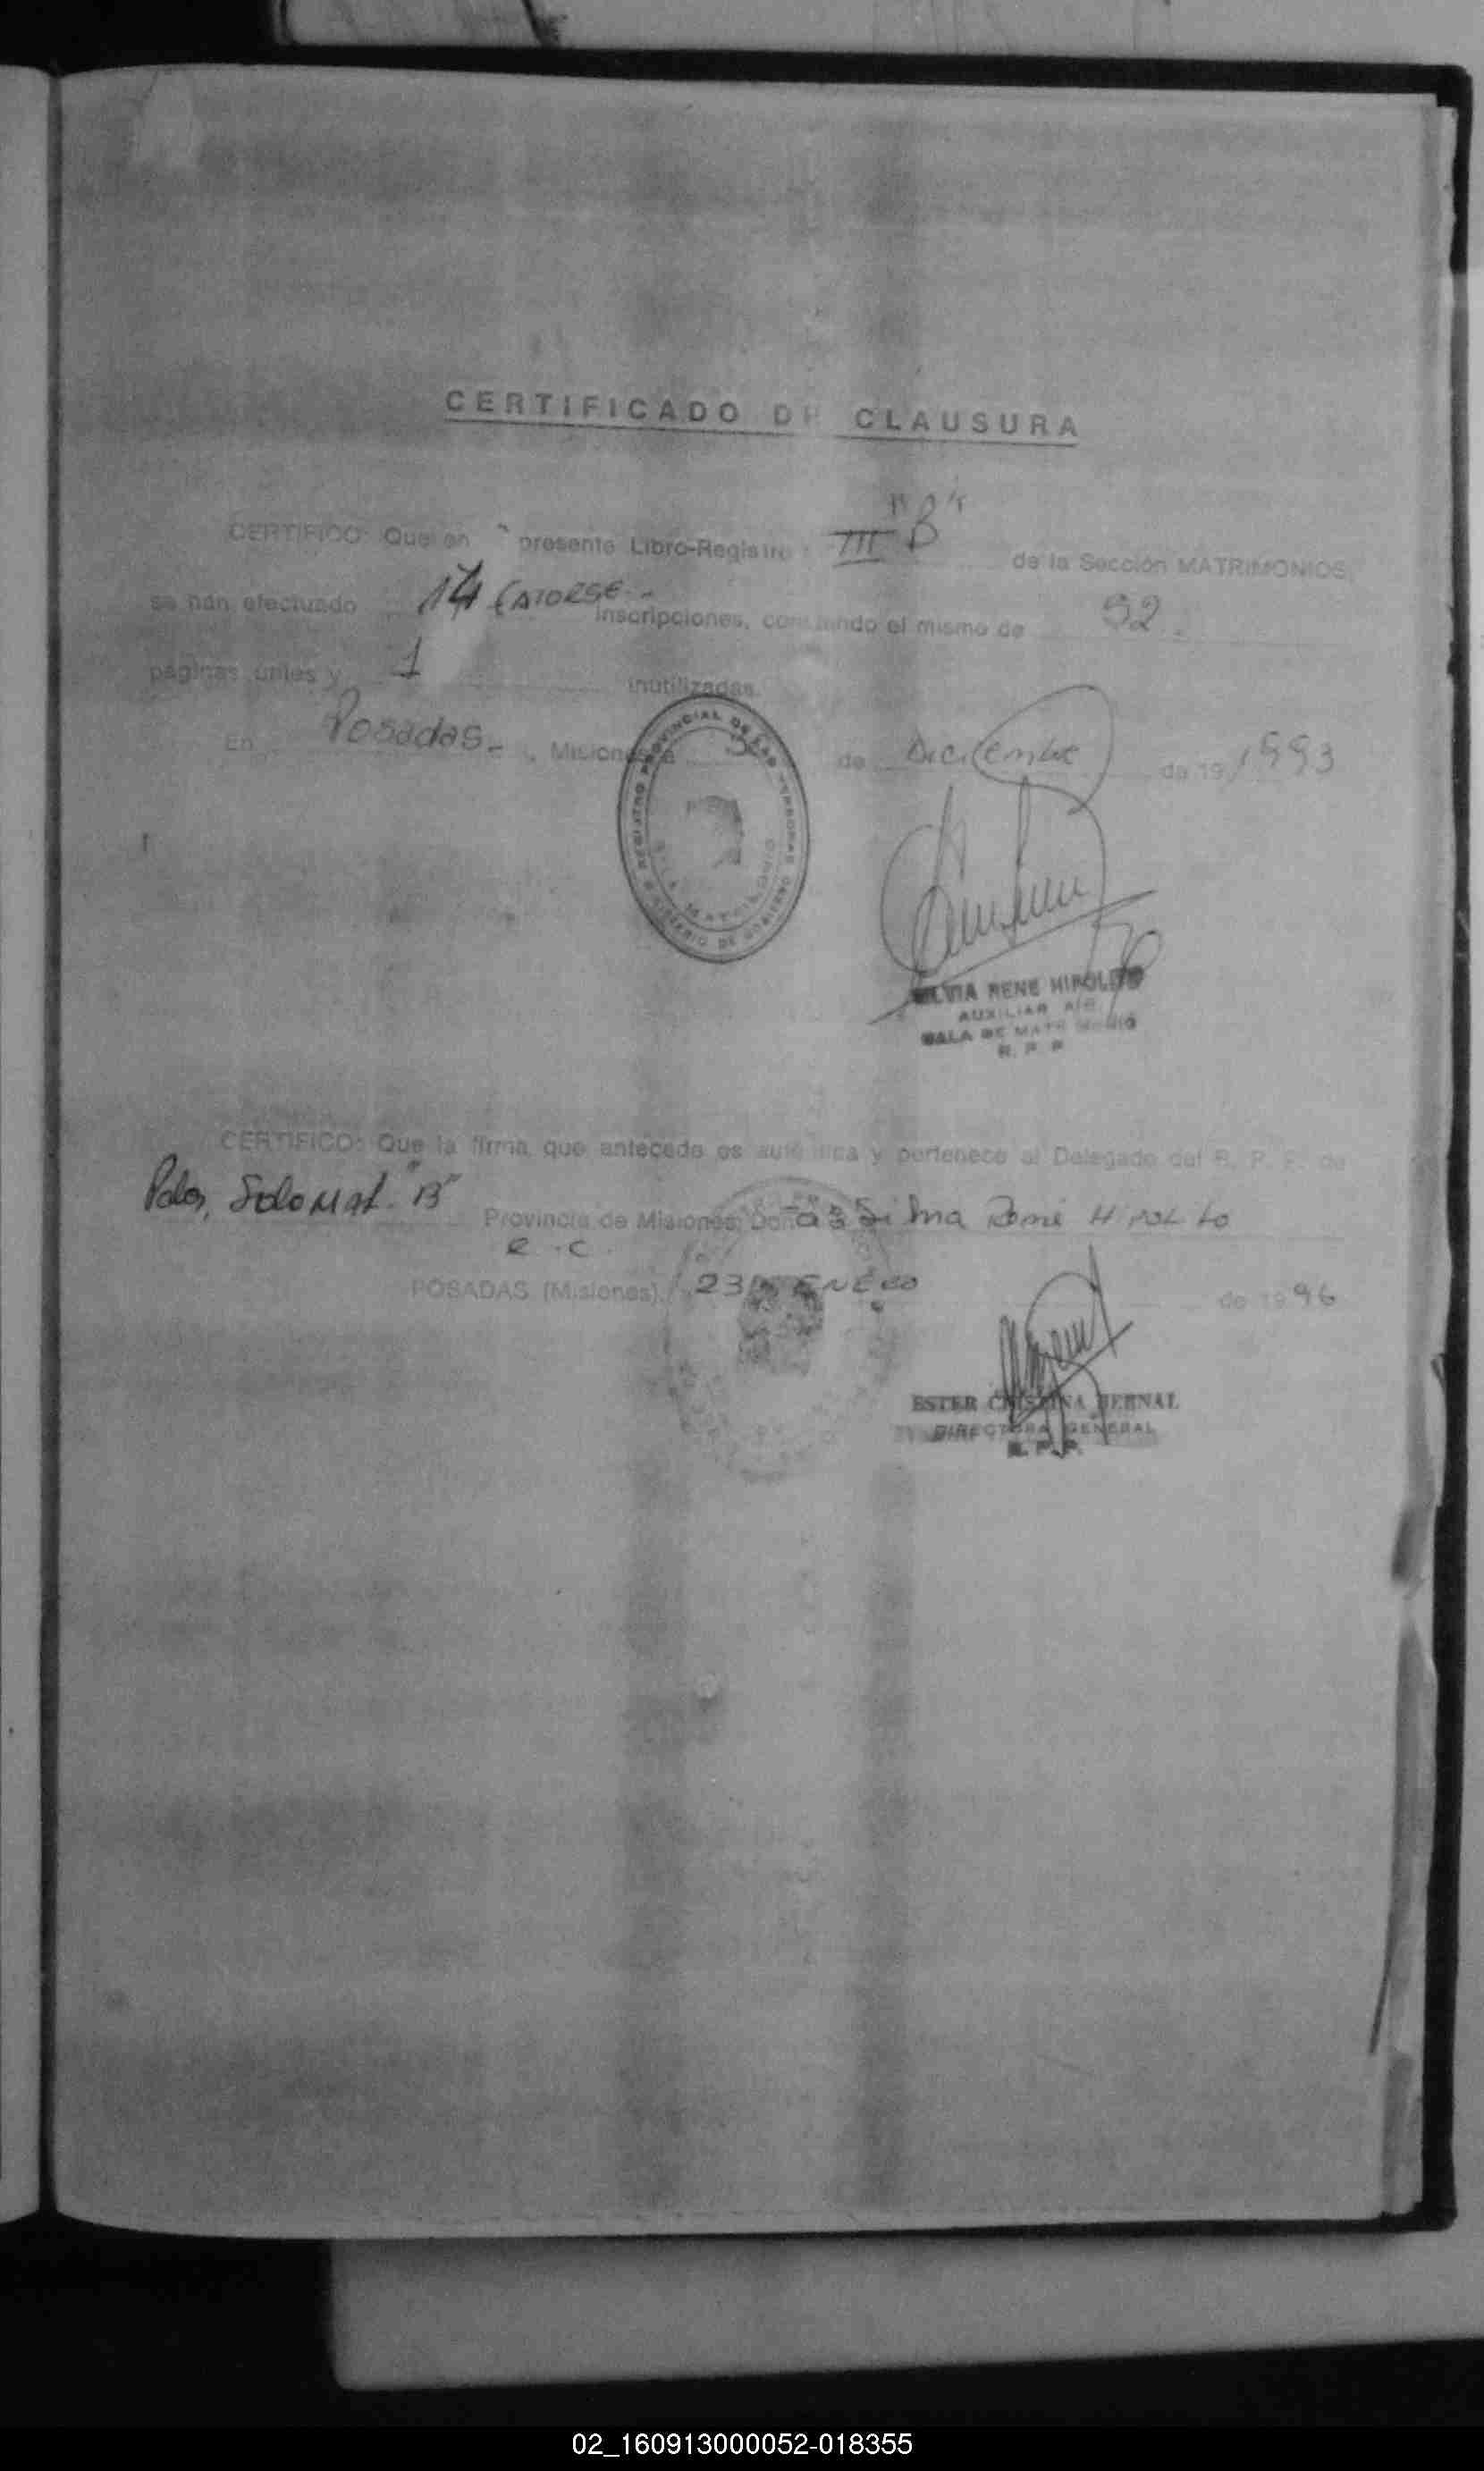 CERTIFICADO DE CLAUSURA
"B"
CERTIFICO: Que en presente Libro-Registro: III de la Sección MATRIMONIOS,
se han efectuado 14 CATORSE.- inscripciones, contando el mismo de 92.
páginas útiles y 1 inutilizadas.
En Posadas.-, Misiones a de Diciembre de 19 1993
REGISTRO PROVINCIAL DE LAS PERSONAS
MINISTERIO DE GOBIERNO
SILVIA RENE HIPOLITO
AUXILIAR
SALA DE MATRIMONIO
R. P. P.
CERTIFICO: Que la firma que antecede es auténtica y pertenece al Delegado del R. P. P. de
"B" Provincia de Misiones, Rene Hipolito
POSADAS (Misiones), 23 ENERO de 1996
ESTER CRISTINA BERNAL
DIRECTORA GENERAL
R. P. P.
02_160913000052-018355